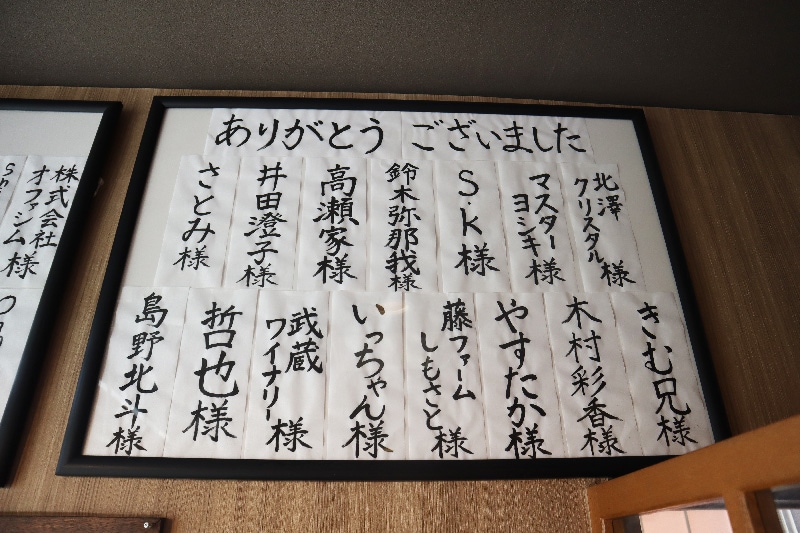 ありがとうございました
北澤
クリスタル様
マスター
ヨシキ様
S.K様
鈴木弥那我様
高瀬家様
井田澄子様
さとみ様
きむ兄様
木村彩香様
やすたか様
藤ファーム
しもさと様
いっちゃん様
武蔵
ワイナリー様
哲也様
島野北斗様
株式会社
オファジム様